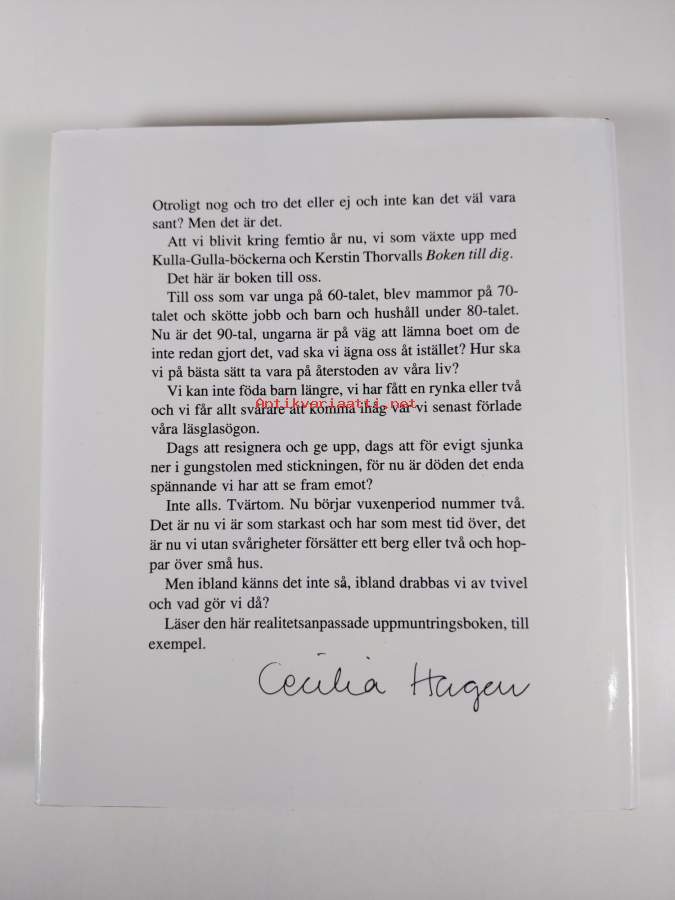 Otroligt nog och tro det eller ej och inte kan det väl vara
sant? Men det är det.
Att vi blivit kring femtio år nu, vi som växte upp med
Kulla-Gulla-böckerna och Kerstin Thorvalls Boken till dig.
Det här är boken till oss.
Till oss som var unga på 60-talet, blev mammor på 70-
talet och skötte jobb och barn och hushåll under 80-talet.
Nu är det 90-tal, ungarna är på väg att lämna boet om de
inte redan gjort det, vad ska vi ägna oss åt istället? Hur ska
vi på bästa sätt ta vara på återstoden av våra liv?
Vi kan inte föda barn längre, vi har fått en rynka eller två
och vi får allt svårare att komma ihåg var vi senast förlade
Antikvariaatti.net
våra läsglasögon.
Dags att resignera och ge upp, dags att för evigt sjunka
ner i gungstolen med stickningen, för nu är döden det enda
spännande vi har att se fram emot?
Inte alls. Tvärtom. Nu börjar vuxenperiod nummer två.
Det är nu vi är som starkast och har som mest tid över, det
är nu vi utan svårigheter försätter ett berg eller två och hop-
par över små hus.
Men ibland känns det inte så, ibland drabbas vi av tvivel
och vad gör vi då?
Läser den här realitetsanpassade uppmuntringsboken, till
exempel.
Cecilia Hagen